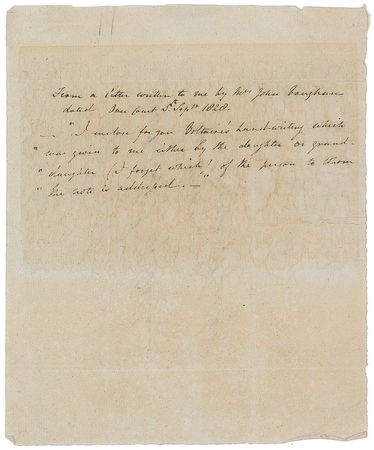 From a letter written to me by Mrs John Vaughan
dated Court Sept 1828.
— "I enclose for you Voltaire's hand-writing which
" was given to me either by the daughter or grand-
" daughter (I forget which) of the person to whom
" the note is addressed. — "